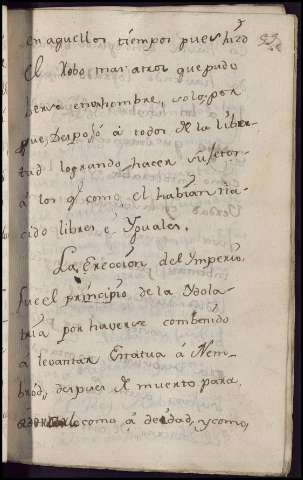 en aquellos tiempos pues hizo
el Robo mas atros que pudo
berse en un hombre, solo por
que Despojó á todos de la liber-
tad logrando hacer sujetos
á los q̃ como el habian na-
cido libres é Yguales.
La Ereccion del Ymperio
fue el principio de la Ydola-
tria por haverse combenido
a levantar Estatua á Nem-
brod, despues de muerto para
adorarlo como á deidad, y como,